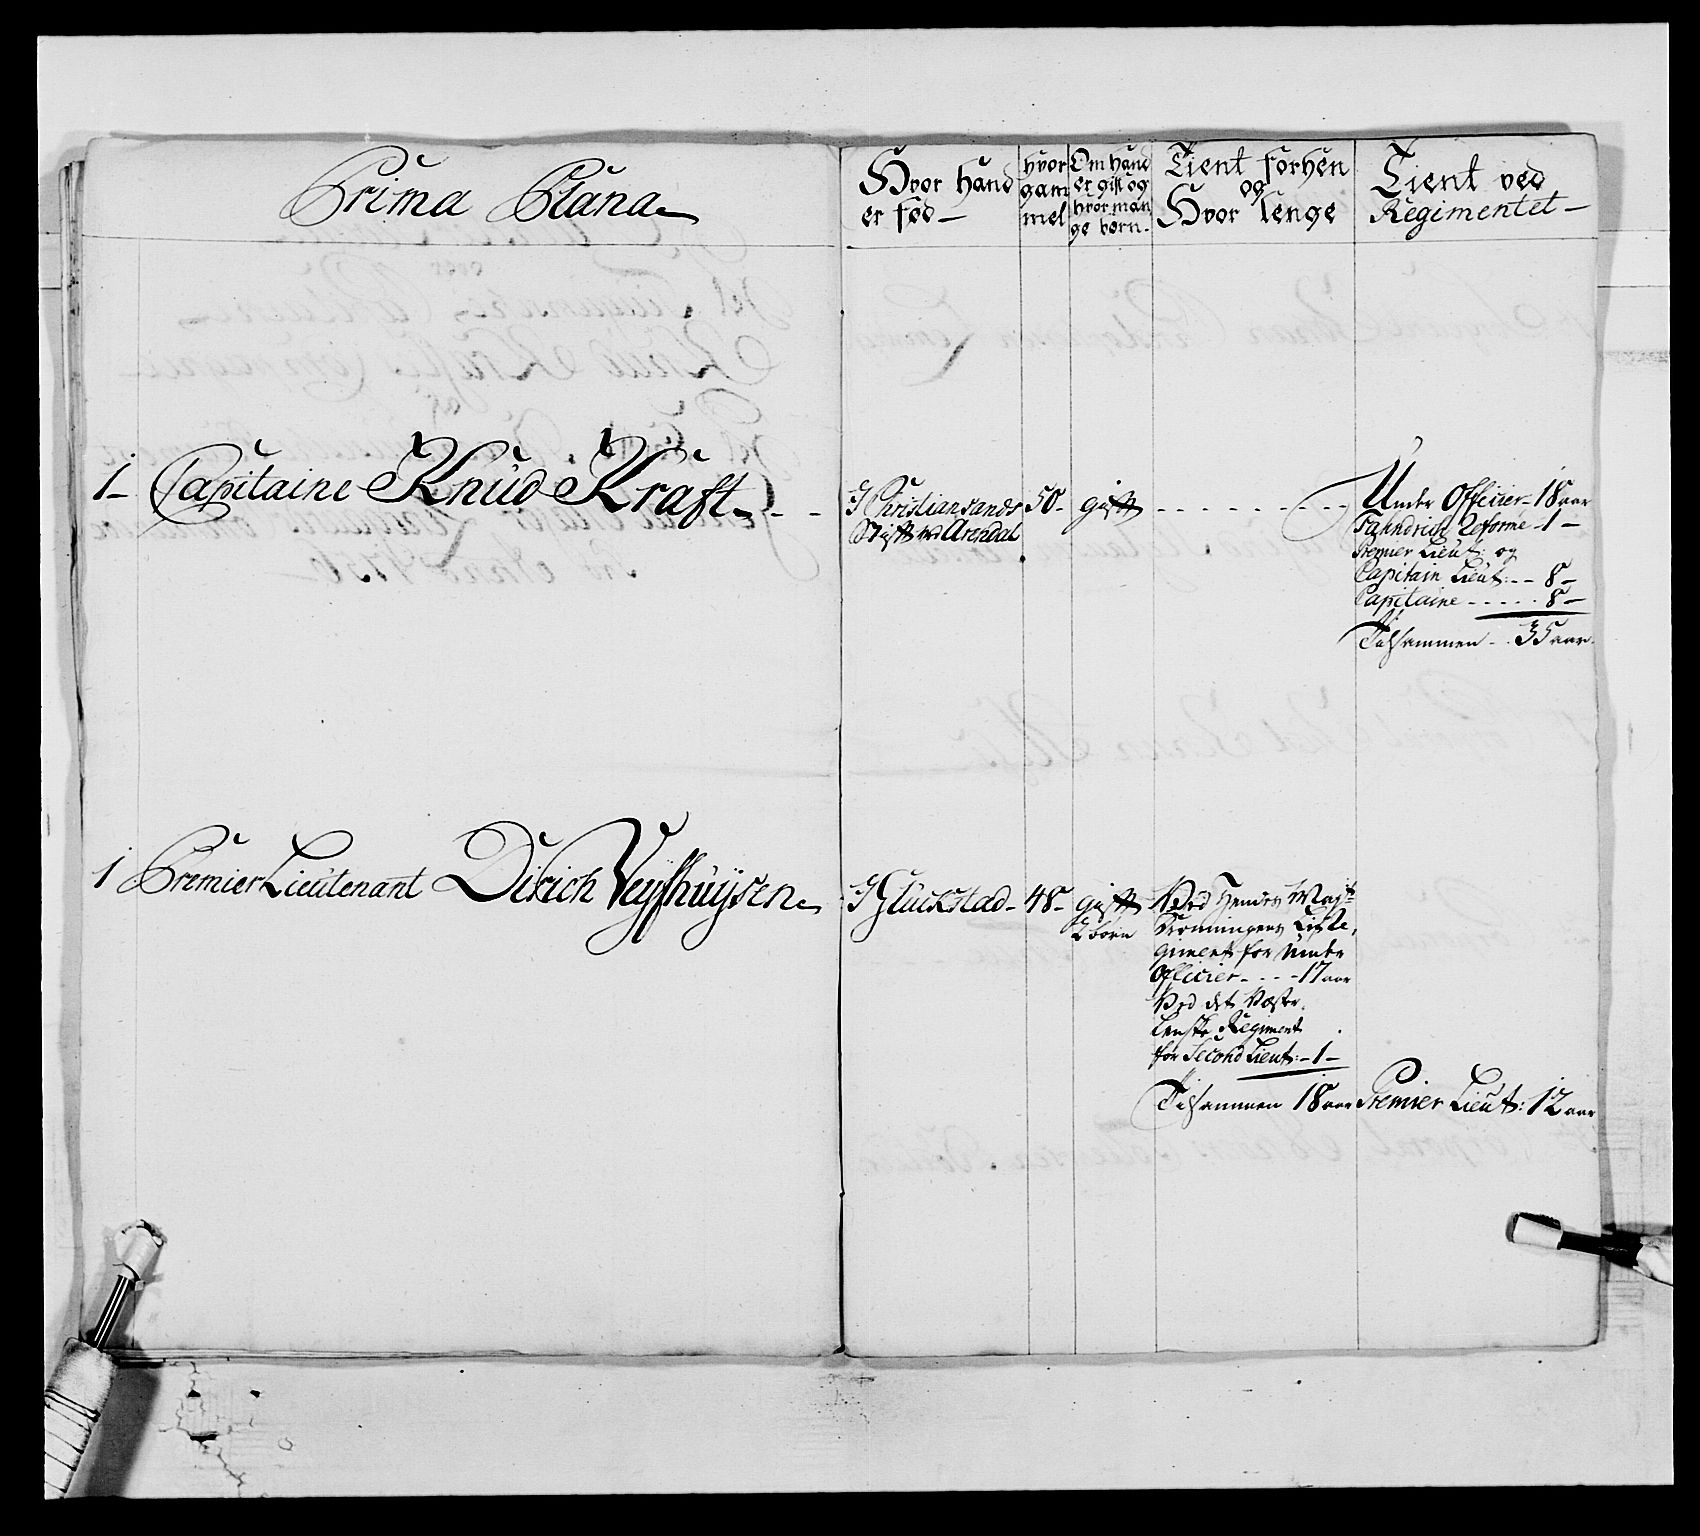 Prima Plana
Hvor hand
er fød
Hvor
gam
mel
Om hand
er gift og
hvor man
ge børn
Tient forhen
og
Hvor lenge
Tient ved
Regimentet
1 Capitaine Knud Kraft
I Christiansands
Stift ved Arendal
50
gift
Under Officier 18 aar
Fahndrich Reforme 1
Premier Lieut: og
Capitain Lieut: 8
Capitaine 8
Tilsammen 35 aar
1 Premier Lieutenant Dirich
I Gluckstad
48
gift
2 børn
Ved Hendes Mayt
Dronningens Liv Re,
giment for Under
Officier 17 aar
Ved det Vester
lenske Regiment
for Second Lieut: 1
Tilsammen 18 aar
Premier Lieut: 12 aar